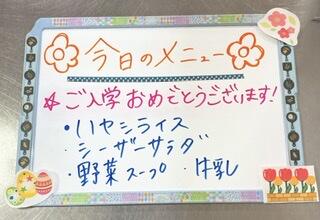 今日のメニュー
☆ご入学おめでとうございます!
・ハヤシライス
・シーザーサラダ
・野菜スープ ・牛乳